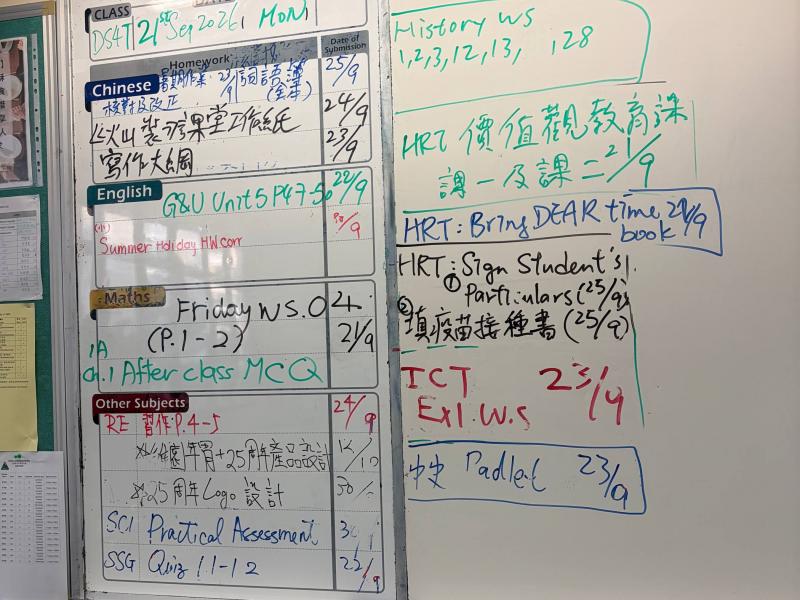 CLASS
DS4T 21st Sep 2026, Mon
Homework
Date of Submission
Chinese
暑期作業: 23/9 詞語簿 (全本) 25/9
核對及改正
火山製作課堂工作紙 24/9
寫作大綱 23/9
English
G&U Unit 5 P47-50 22/9
Summer Holiday HW corr /9
Maths
Friday WS. 04 21/9
(P.1-2)
1A
Ch.1 After class MCQ
Other Subjects
RE 習作:P.4-5 24/9
年曆+25周年產品設計
25周年Logo設計 30/
SCI Practical Assessment 30/
SSG Quiz 1.1-1.2 22/9
History WS
1,2,3,12,13, ,28
HRT 價值觀教育課
課一及課二 21/9
HRT: Bring DEAR time book 21/9
HRT: Sign Student's
① Particulars (25/9)
② 填疫苗接種書 (25/9)
ICT 23/9
Ex1 W.S
中史 Padlet 23/9